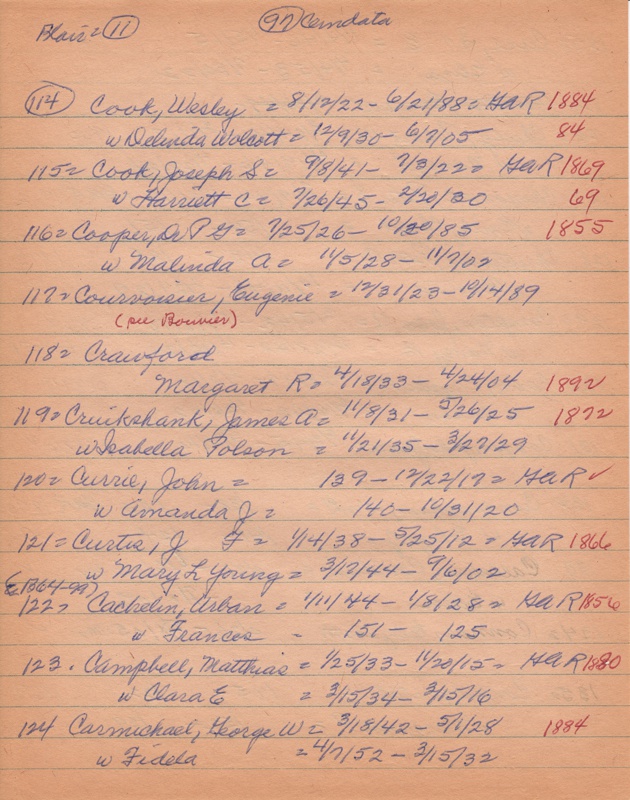 Blair = 11 97 Cemdata
114 Cook, Wesley = 8/12/22 - 6/21/88 = GAR 1884
w Delinda Wolcott = 12/9/30 - 6/7/05 84
115 = Cook, Joseph S = 9/8/41 - 7/3/22 = GAR 1869
w Harriett C = 7/26/45 - 2/20/30 69
116 = Cooper, Dr P G = 7/25/26 - 10/20/85 1855
w Malinda A = 11/5/28 - 11/7/02
117 = Courvoisier, Eugenie = 12/31/23 - 10/14/89
(see Bouvier)
118 = Crawford
Margaret R = 4/18/33 - 4/24/04 1892
119 = Cruikshank, James A = 11/8/31 - 5/26/25 1872
w Isabella Polson = 11/21/35 - 3/27/29
120 = Currie, John = 139 - 12/22/17 = GAR ✓
w Amanda J = 140 - 10/31/20
121 = Curtis, J F = 1/14/38 - 5/25/12 = GAR 1866
w Mary L Young = 3/12/44 - 9/6/02
(B64-99)
122 = Cachelin, Urban = 1/11/44 - 1/8/28 = GAR 1856
w Frances = 151 - 125
123. Campbell, Matthias = 1/25/33 - 11/20/15 = GAR 1880
w Clara E = 3/15/34 - 3/15/16
124 Carmichael, George W = 3/18/42 - 5/1/28 1884
w Fidela = 4/7/52 - 3/15/32